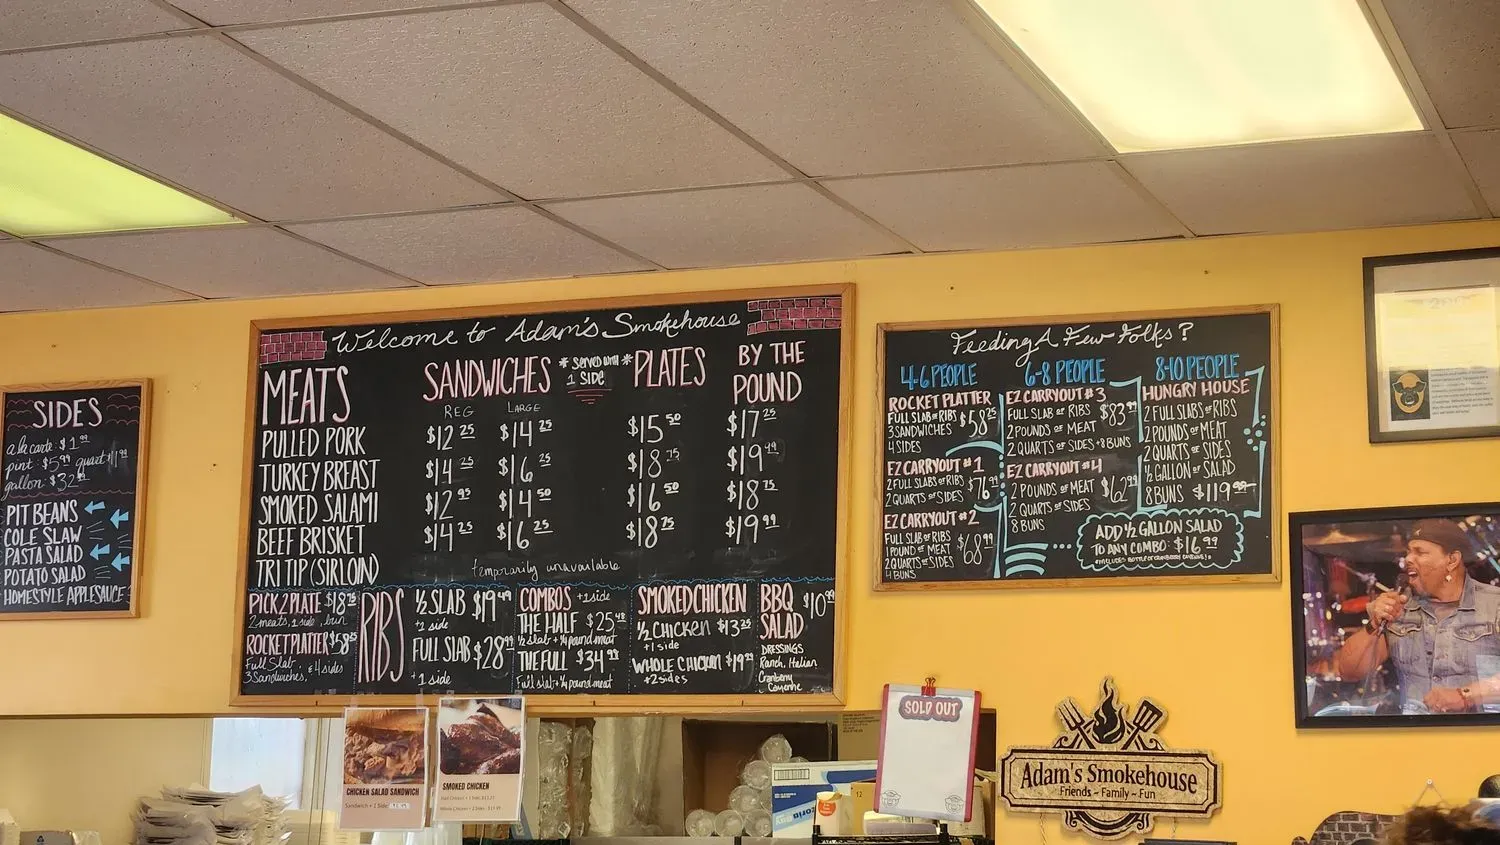 SIDES
a la carte: $1.99
pint: $5.99 quart $11.99
gallon: $32.99
PIT BEANS
COLE SLAW
PASTA SALAD
POTATO SALAD
HOMESTYLE APPLESAUCE
Welcome to Adam's Smokehouse
MEATS
SANDWICHES
* Served with *
1 SIDE
PLATES
BY THE
POUND
REG LARGE
PULLED PORK $12.25 $14.25 $15.50 $17.25
TURKEY BREAST $14.25 $16.25 $18.75 $19.49
SMOKED SALAMI $12.95 $14.50 $16.50 $18.75
BEEF BRISKET $14.25 $16.25 $18.75 $19.99
TRI TIP (SIRLOIN) temporarily unavailable
PICK 2 PLATE $18.75
2 meats, 1 side, bun
ROCKET PLATTER $58.25
Full Slab,
3 Sandwiches, & 4 sides
RIBS
1/2 SLAB $19.49
+1 side
FULL SLAB $28.99
+1 side
COMBOS +1 side
THE HALF $25.48
1/2 slab + 1/4 pound meat
THE FULL $34.99
Full slab + 1/4 pound meat
SMOKED CHICKEN
1/2 CHICKEN $13.25
+1 side
WHOLE CHICKEN $19.99
+2 sides
BBQ $10.99
SALAD
DRESSINGS
Ranch, Italian
Cranberry
Cayenne
Feeding A Few Folks?
4-6 PEOPLE
ROCKET PLATTER
FULL SLAB OF RIBS $58.25
3 SANDWICHES
4 SIDES
EZ CARRYOUT #1
2 FULL SLABS OF RIBS $76.99
2 QUARTS OF SIDES
EZ CARRYOUT #2
FULL SLAB OF RIBS $68.99
1 POUND OF MEAT
2 QUARTS OF SIDES
4 BUNS
6-8 PEOPLE
EZ CARRYOUT #3
FULL SLAB OF RIBS $83.99
2 POUNDS OF MEAT
2 QUARTS OF SIDES + 8 BUNS
EZ CARRYOUT #4
2 POUNDS OF MEAT
2 QUARTS OF SIDES
8 BUNS
8-10 PEOPLE
HUNGRY HOUSE
2 FULL SLABS OF RIBS
2 POUNDS OF MEAT
2 QUARTS OF SIDES
1/2 GALLON OF SALAD
8 BUNS $119.99
ADD 1/2 GALLON SALAD
TO ANY COMBO: $16.99
CHICKEN SALAD SANDWICH
Sandwich + 1 Side
SMOKED CHICKEN
SOLD OUT
Adam's Smokehouse
Friends ~ Family ~ Fun